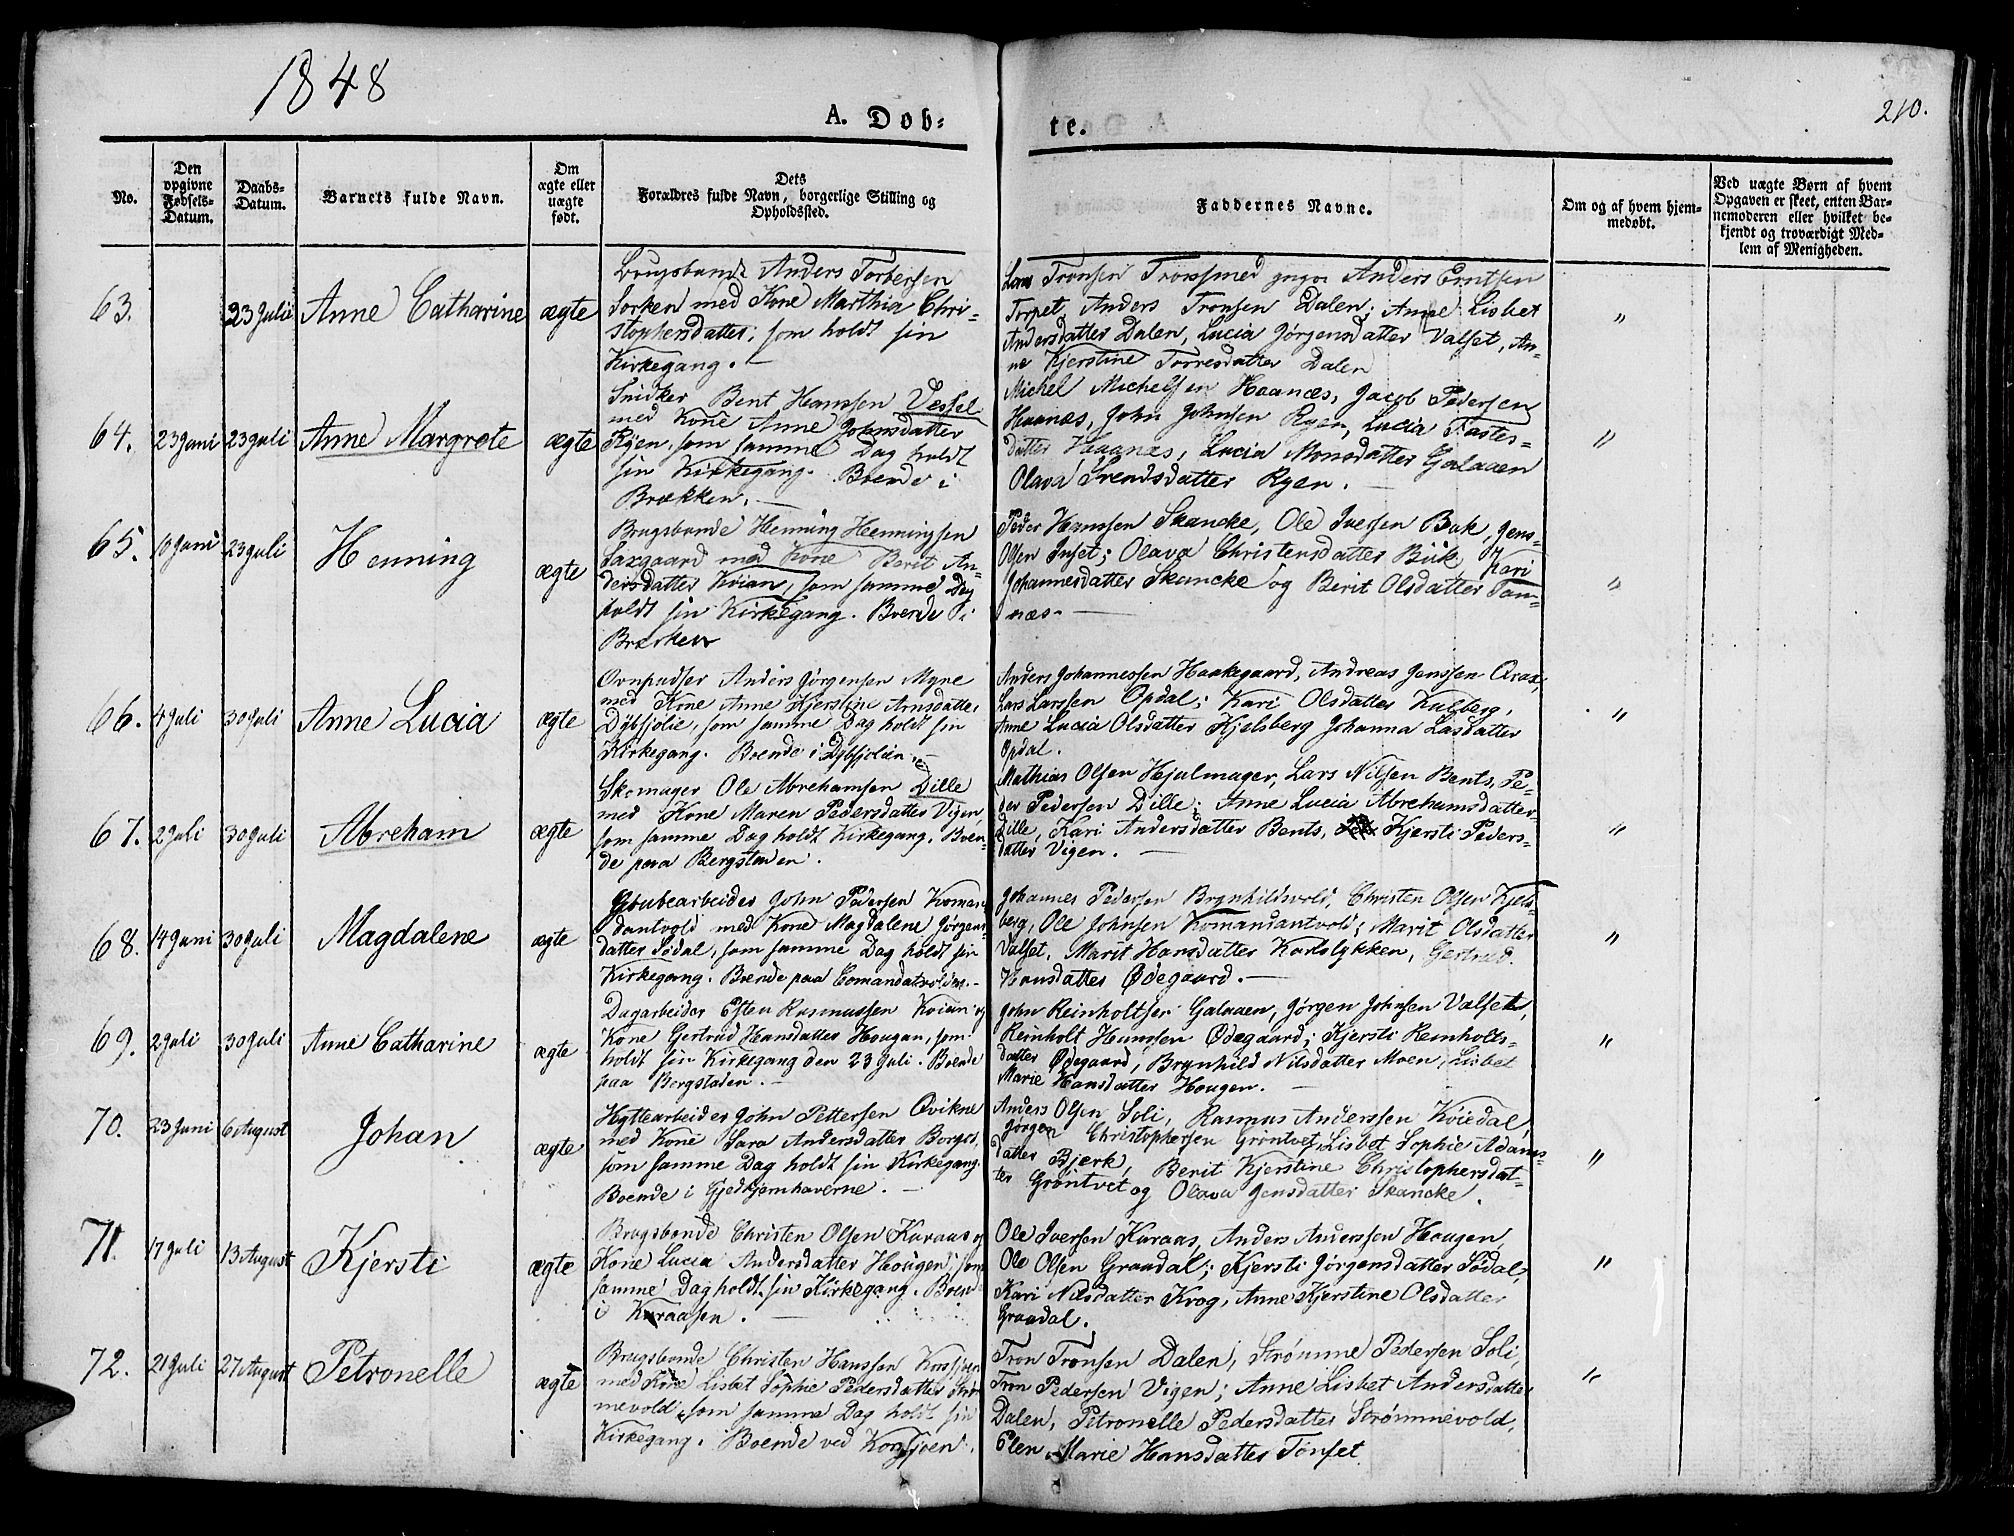 1848
A. Døb-
te.
210.
No.
Den opgivne Fødsels-Datum.
Daabs-Datum.
Barnets fulde Navn.
Om ægte eller uægte født.
Dets Forældres fulde Navn, borgerlige Stilling og Opholdssted.
Faddernes Navne.
Om og af hvem hjemmedøbt.
Ved uægte Børn af hvem Opgaven er skeet, enten Barnemoderen eller hvilket bekjendt og troværdigt Medlem af Menigheden.
63.
23 Juli
Anne Catharine
ægte
Brugsbonde Anders Torbersen
Sorken med Kone Marthia Chri-
stophersdatter, som holdt sin
Kirkegang. —
Lars Tronsen Tronsmed Anders Erntsen
Torpet, Anders Tronsen Dalen; Anne Lisbet
Andersdatter Dalen, Lucia Jørgensdatter Valset, An-
ne Kjerstine Torresdatter Dalen
"
64.
23 Juni
23 Juli
Anne Margrete
ægte
Snidker Bent Hanssen Vessel
med Kone Anne Johnsdatter
Ryen, som samme Dag holdt
sin Kirkegang. Boende i
Brækken. —
Michel Michelsen Haanæs, Jacob Pedersen
Haanæs, John Johnsen Ryen, Lucia Fastes-
datter Haanæs, Lucia Monsdatter Galaaen
Olava Svendsdatter Ryen. —
"
65.
10 Juni
23 Juli
Henning
ægte
Brugsbonde Henning Henningsen
Saxgaard med Kone Berit An-
dersdatter Kvian, som samme Dag
holdt sin Kirkegang. Boende i
Brækken
Peder Hanssen Skancke, Ole Iversen Bak, Jens
Olsen Inset; Olava Christensdatter Bak Kari
Johannesdatter Skancke og Berit Olsdatter Tam-
næs. —
"
66.
4 Juli
30 Juli
Anne Lucia
ægte
Ovnpudser Anders Jørgensen Myne
med Kone Anne Kjerstine Arnsdatter
Dybsjølie, som samme Dag holdt sin
Kirkegang. Boende i Dybsjølien. —
Anders Johannessen Haakegaard, Andreas Jenssen
Lars Larssen Opdal; Kari Olsdatter Kulberg,
Anne Lucia Olsdatter Kjelsberg Johanna Lasdatter
Opdal.
"
67.
2 Juli
30 Juli
Abreham
ægte
Skomager Ole Abrehamsen Dille
med Kone Maren Pedersdatter Vigen,
som samme Dag holdt Kirkegang. Boen-
de paa Bergstaden.
Mathias Olsen Hjulmager, Lars Nilsen Bents, Pe-
der Pedersen Dille; Anne Lucia Abrehamsdatter
Dille, Kari Andersdatter Bents, Kjersti Peders-
datter Vigen. —
"
68.
14 Juni
30 Juli
Magdalene
ægte
Grubearbeider John Pedersen Koman
dantvold med Kone Magdalene Jørgens-
datter Sødal, som samme Dag holdt sin
Kirkegang. Boende paa Comandatvolden. —
Johannes Pedersen Brynhildsvold, Christen Olsen Kjels-
berg, Ole Johnsen Komandantvold; Marit Olsdatter
Valset, Marit Hansdatter Karlslykken, Gertrud
Hansdatter Ødegaard. —
"
69.
2 Juli
30 Juli
Anne Catharine
ægte
Dagarbeider Esten Rasmussen Kvian og
Kone Gertrud Hansdatter Hougan, som
holdt sin Kirkegang den 23 Juli. Boende
paa Bergstaden. —
John Reinholtsen Galaaen, Jørgen Johnsen Valset,
Reinholt Hanssen Ødegaard; Kjersti Reinholts-
datter Ødegaard, Brynhild Nilsdatter Moen, Lisbet
Marie Hansdatter Hougen. —
"
70.
23 Juni
6 August
Johan
ægte
Hyttearbeider John Pettersen Qvikne
med Kone Sara Andersdatter Borgos,
som samme Dag holdt sin Kirkegang.
Boende i Gjedkjernhaverne. —
Anders Olsen Soli, Rasmus Anderssen Køiedal,
Jørgen Christophersen Grøntvet, Lisbet Sophie Adams-
datter Bjerk, Berit Kjerstine Christophersdat-
ter Grøntvet og Olava Jensdatter Skancke.
"
71.
17 Juli
13 August
Kjersti
ægte
Brugsbonde Christen Olsen Kuraas og
Kone Lucia Andersdatter Hougen, som
samme Dag holdt sin Kirkegang. Boende
i Kuraasen. —
Ole Iversen Kuraas, Anders Anderssen Hougen,
Ole Olsen Graadal; Kjersti Jørgensdatter Sødal,
Kari Nilsdatter Krog, Anne Kjerstine Olsdatter
Graadal.
"
72.
21 Juli
27 August
Petronelle
ægte
Brugsbonde Christen Hanssen Korssjøen
med Kone Lisbet Sophie Pedersdatter Strøm-
nevold, som samme Dag holdt sin
Kirkegang. Boende ved Korssjøen.
Tron Tronsen Dalen, Strømme Pedersen Soli,
Tron Pedersen Vigen; Anne Lisbet Andersdatter
Dalen, Petronelle Pedersdatter Strømnevold,
Elen Marie Hansdatter Tønset
"